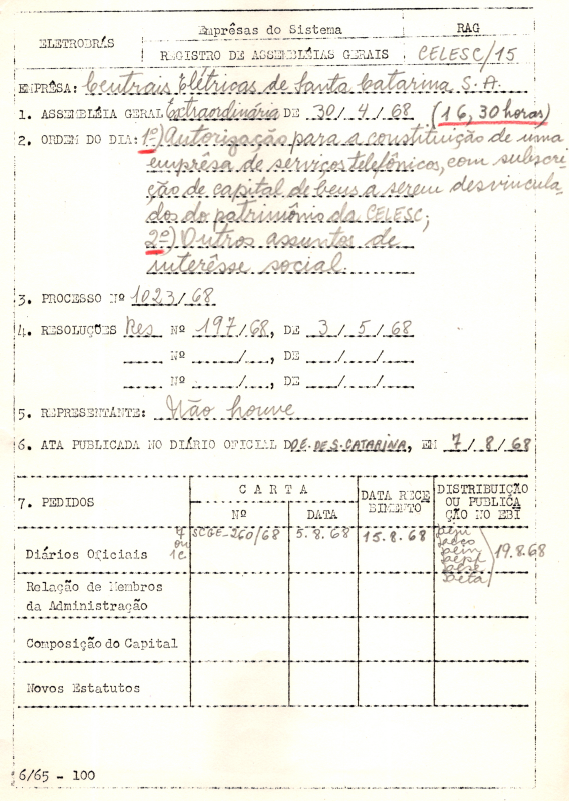 ELETROBRÁS
Emprêsas do Sistema
REGISTRO DE ASSEMBLÉIAS GERAIS
RAG
CELESC/15
EMPRÊSA: Centrais Elétricas de Santa Catarina S. A.
1. ASSEMBLÉIA GERAL Extraordinária DE 30/4/68 (16,30 horas)
2. ORDEM DO DIA: 1º) Autorização para a constituição de uma
emprêsa de serviços telefônicos, com subscri-
ção de capital de bens a serem desvincula-
dos do patrimônio da CELESC;
2º) Outros assuntos de
interêsse social.
3. PROCESSO Nº 1023/68
4. RESOLUÇÕES Res Nº 197/68, DE 3/5/68
Nº / , DE / /
Nº / , DE / /
5. REPRESENTANTE: Não houve
6. ATA PUBLICADA NO DIÁRIO OFICIAL DOE. DE S. CATARINA, EM 7/8/68
7. PEDIDOS
CARTA
Nº
DATA
DATA RECE
BIMENTO
DISTRIBUIÇÃO
OU PUBLICA
ÇÃO NO EBI
Diários Oficiais
SCGE-260/68
5.8.68
15.8.68
19.8.68
Relação de Membros
da Administração
Composição do Capital
Novos Estatutos
6/65 - 100